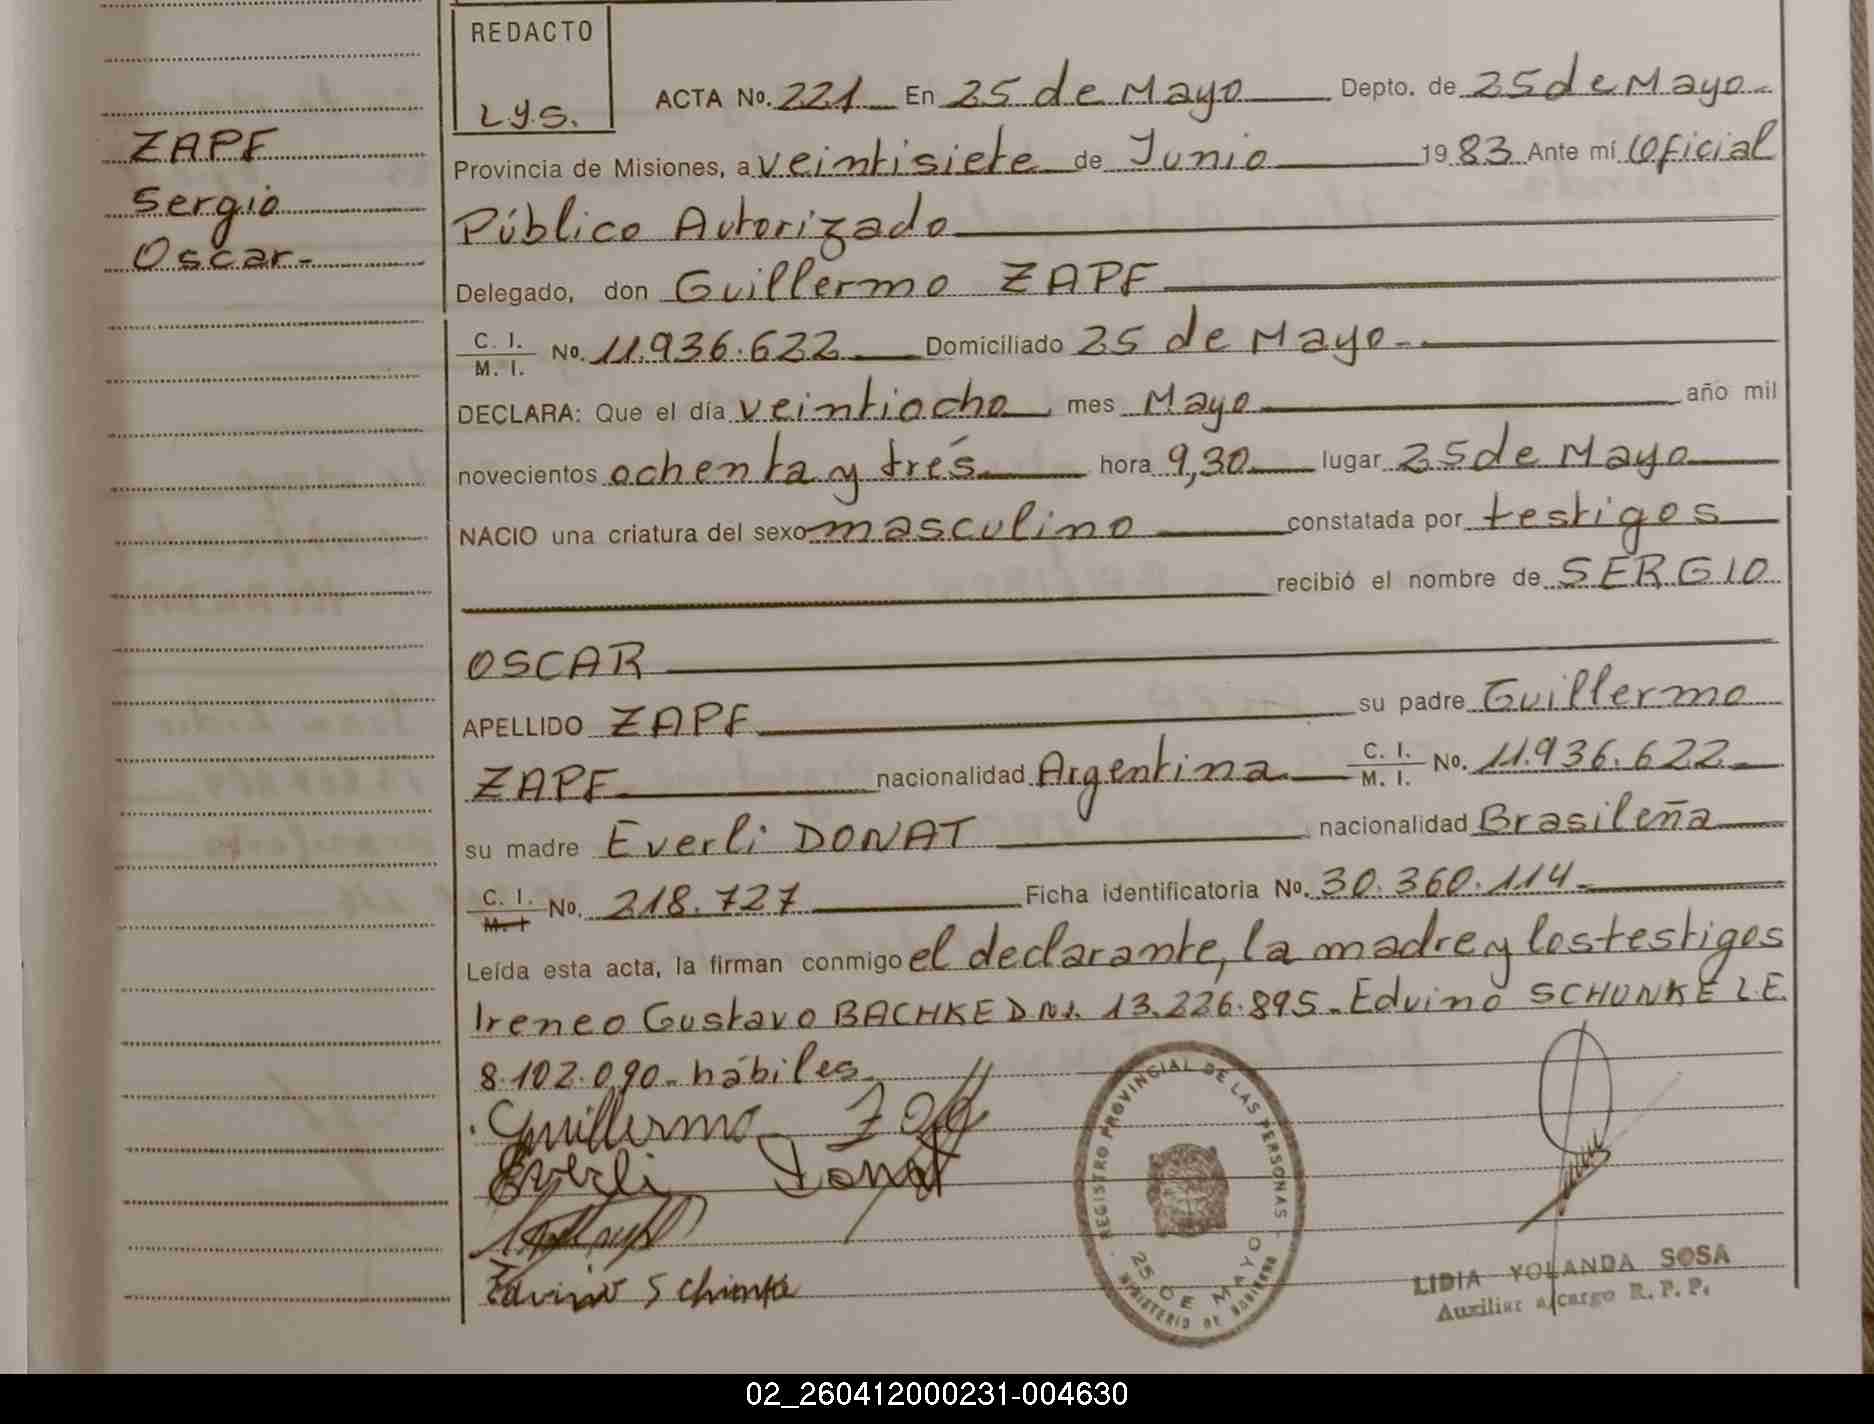 REDACTO
L.Y.S.
ZAPF
Sergio
Oscar-
ACTA No. 221 En 25 de Mayo Depto. de 25 de Mayo
Provincia de Misiones, a veintisiete de Junio 1983 Ante mí Oficial
Público Autorizado
Delegado, don Guillermo ZAPF
C. I. M. I. No. 11.936.622 Domiciliado 25 de Mayo
DECLARA: Que el día veintiocho mes Mayo año mil
novecientos ochenta y trés hora 9,30 lugar 25 de Mayo
NACIO una criatura del sexo masculino constatada por testigos
recibió el nombre de SERGIO
OSCAR
APELLIDO ZAPF su padre Guillermo
ZAPF nacionalidad Argentina C. I. M. I. No. 11.936.622
su madre Everli DONAT nacionalidad Brasileña
C. I. M. I No. 218.727 Ficha identificatoria No. 30.360.114
Leída esta acta, la firman conmigo el declarante, la madre y los testigos
Ireneo Gustavo BACHKE D.N.I. 13.226.895. Eduino SCHUNKE L.E.
8.102.090. hábiles
Guillermo Zapf
Everli Donat
Eduino Schunke
REGISTRO PROVINCIAL DE LAS PERSONAS
25 DE MAYO
MINISTERIO DE GOBIERNO
LIDIA YOLANDA SOSA
Auxiliar a/cargo R. P. P.
02_260412000231-004630